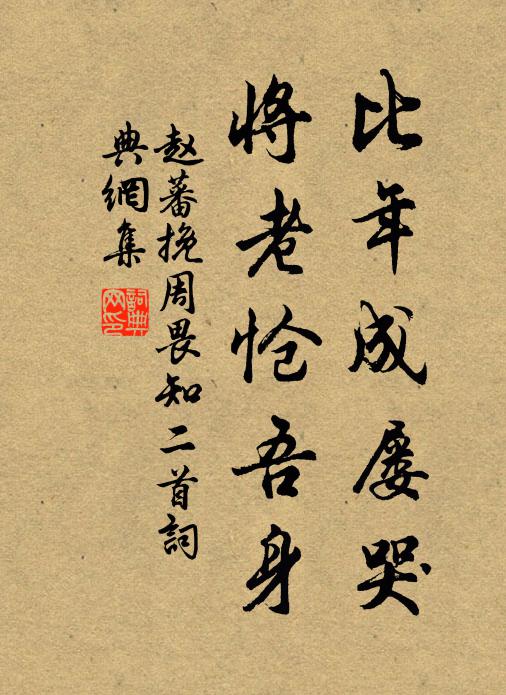 比年成屡哭
将老怆吾身
赵蕃挽周畏知二首詞
典網集
詞典网印